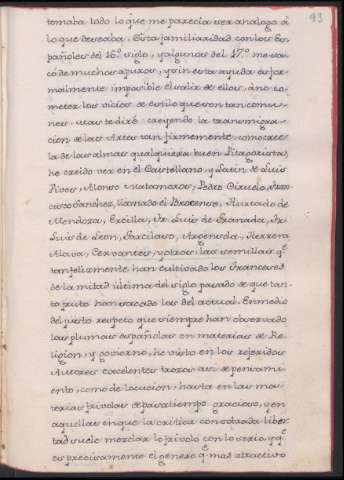 93
tomaba todo lo que me parecia ser analogo à
lo que deseaba. Esta familiaridad con los Es-
pañoles del 16.º siglo, y algunos del 17.º me sa-
có de muchos apuros, y sin esta ayuda es for-
malmente imposible el salir de ellos, á no co-
meter los vicios de estilo que son tan comu-
nes. Mas te diré: creyendo la transmigra-
cion de las Artes tan firmemente como cree
la de las almas qualquiera buen Pitagorista,
he creido ver en el Castellano, y Latin de Luis
Vives, Alonso Matamoros, Pedro Ciruelo, Fran-
cisco Sanchez, llamado el Brocense, Hurtado de
Mendoza, Ercilla, Fr. Luis de Granada, Fr.
Luis de Leon, Garcilaso, Argensola, Herrera
Alava, Cervantes, y otros, las semillas q.e
tan felizmente han cultivado los Franceses
de la mitad última del siglo pasado de que tan-
to fruto han sacado los del actual. En medio
del justo respeto que siempre han observado
las plumas españolas en materias de Re-
ligion, y govierno, he visto en los referidos
Autores excelentes trozos asi de pensami-
ento, como de locucion, hasta en las ma-
terias frivolas de pasatiempo gracioso, y en
aquellas en que la critica con sobrada liber-
tad suele mezclar lo frivolo con lo serio, y q.e
es precisamente el genero q.e mas atractivo